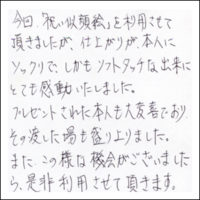 今回、「祝い似顔絵」を利用させて
頂きましたが、仕上がりが、本人に
ソックリで、しかもソフトタッチな出来に
とても感動いたしました。
プレゼントされた本人も大変喜こおり、
その渡した場も盛り上りました。
また、この様な機会がございました
ら、是非利用させて頂きます。